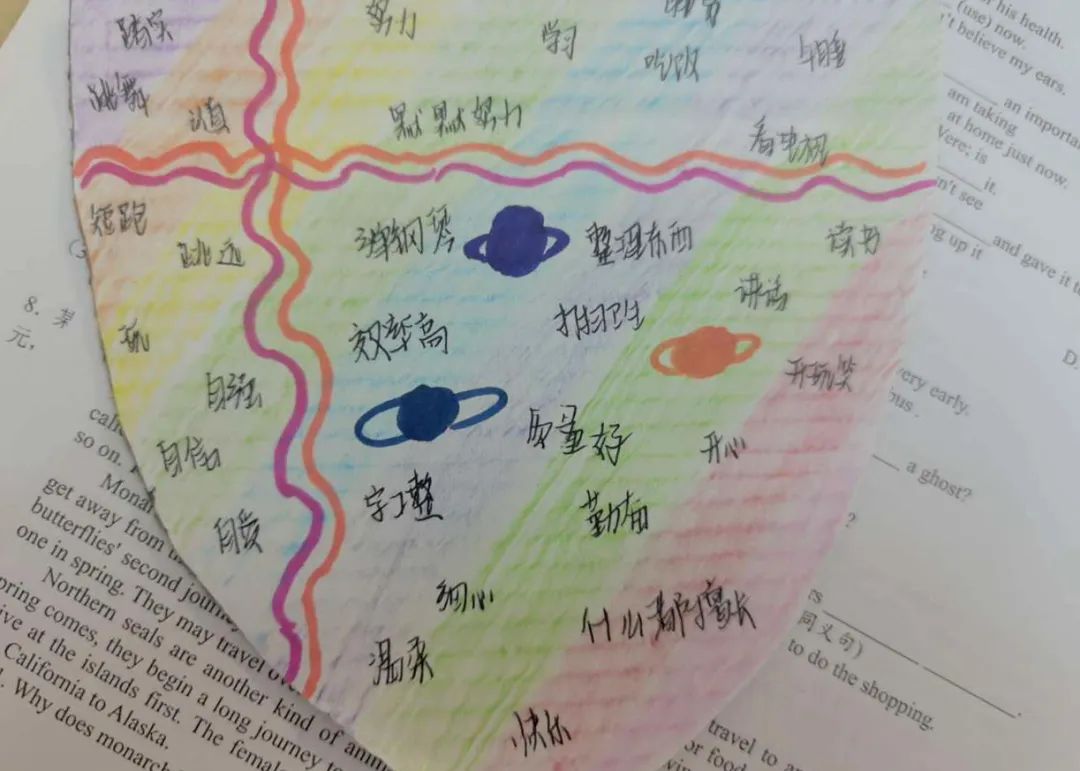 踏实
努力
学习
吃饭
午睡
跳舞
认真
默默努力
看电视
短跑
跳远
弹钢琴
整理东西
读书
玩
效率高
打扫卫生
讲话
自强
开玩笑
自信
质量好
开心
自爱
字工整
勤奋
细心
什么都擅长
温柔
快乐
his health.
(use) now.
't believe my ears.
an importa
am taking
at home just now.
Were; is
it.
n't see
ng up it
and gave it t
D.
8. 某
元,
very early.
bus.
a ghost?
?
同义句)
to do the shopping.
travel to
or food
so on.
Mona
get away from
butterflies' second journ
one in spring. They may travel
Northern seals are another kind of anim
pring comes, they begin a long journey to
ive at the islands first. The fema
California to Alaska.
. Why does monarch